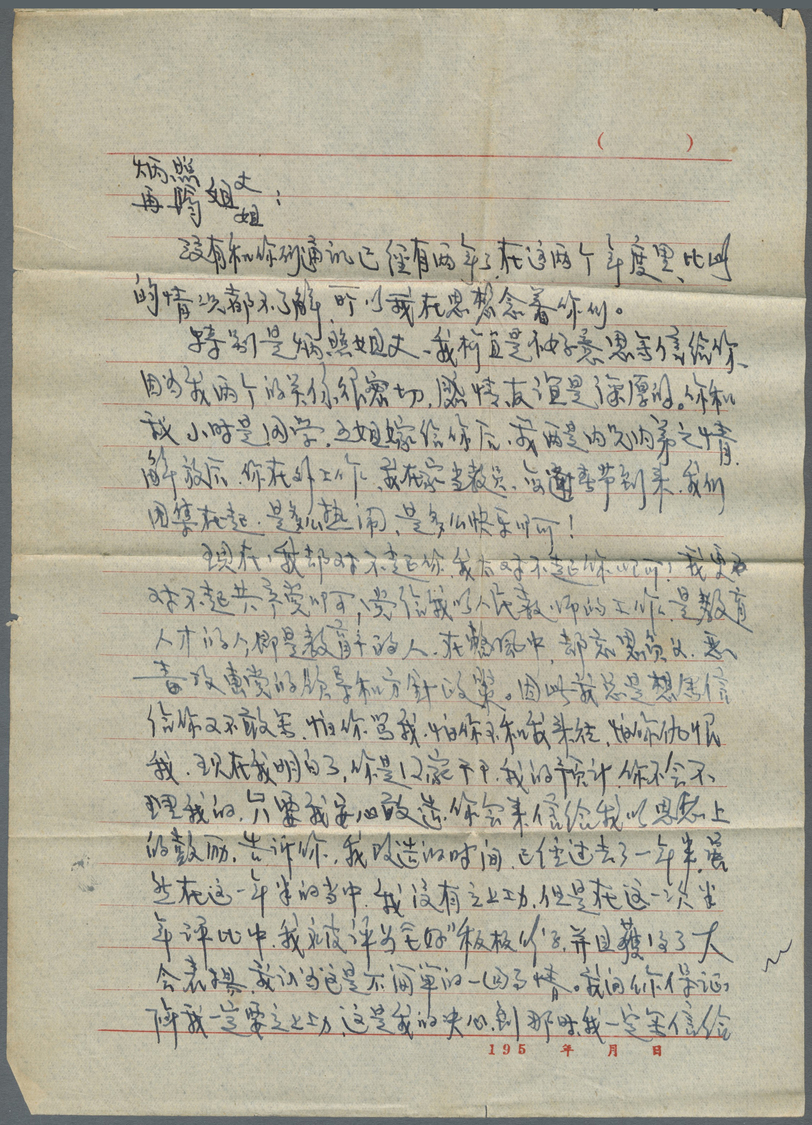 ( )
炳照 姐丈
再 姐 :
没有和你们通讯已经有两年了,在这两个年度里,彼此
的情况都不了解,所以我在思想念着你们。
特别是炳照姐丈、我 真是 好意思写信给你、
因为我两个的关系很密切,感情友谊是深厚的。你和
我小时是同学,五姐嫁给你后,我两是内兄内弟之情,
解放后,你在外工作,我在家当教员,每逢春节到来,我们
团集在起,是多么热闹,是多么快乐呵!
现在,我却对不起你,我太对不起你呵!我更
对不起共产党呵,党给我以人民教师的工作,是教育
人才的人却是教育 的人,在整风中,却忘恩负义,恶
毒攻击党的领导和方针政策。因此我总是想写信
给你又不敢写,怕你骂我,怕你不和我来往,怕你仇恨
我,现在我明白了,你是国家干部,我的 预计,你不会不
理我的,只要我安心改造,你会来信给我以思想上
的鼓励,告诉你,我改造的时间,已经过去了一年半,虽
然在这一年半的当中,我没有立上功,但是在这一次半
年评比中,我被评为全好"板板 ",并且获得了大
会表扬,我认为这是不简单的一回事情。我向你保证,
我一定要立上功,这是我的决心,到那时我一定写信给
195 年 月 日